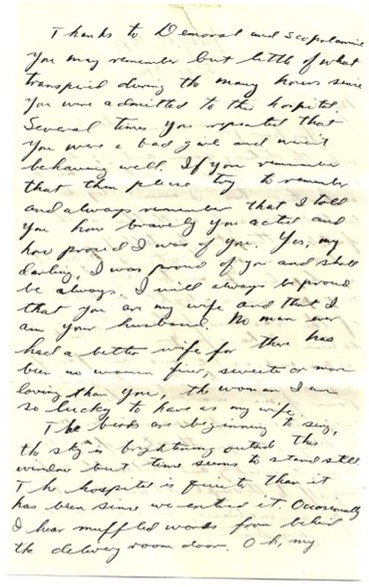 Thanks to Demerol and Scopolamine
you may remember but little of what
transpired during the many hours since
you were admitted to the hospital.
Several times you repeated that
you were a bad girl and weren't
behaving well. If you remember
that then please try to remember
and always remember that I told
you how bravely you acted and
how proud I was of you. Yes, my
darling, I was proud of you and shall
be always. I will always be proud
that you are my wife and that I
am your husband. No man ever
had a better wife for there has
been no woman finer, sweeter or more
loving than you, the woman I am
so lucky to have as my wife.
The birds are beginning to sing,
the sky is brightening outside this
window but time seems to stand still.
The hospital is quieter than it
has been since we entered it. Occasionally
I hear muffled words from behind
the delivery room door. Oh, my